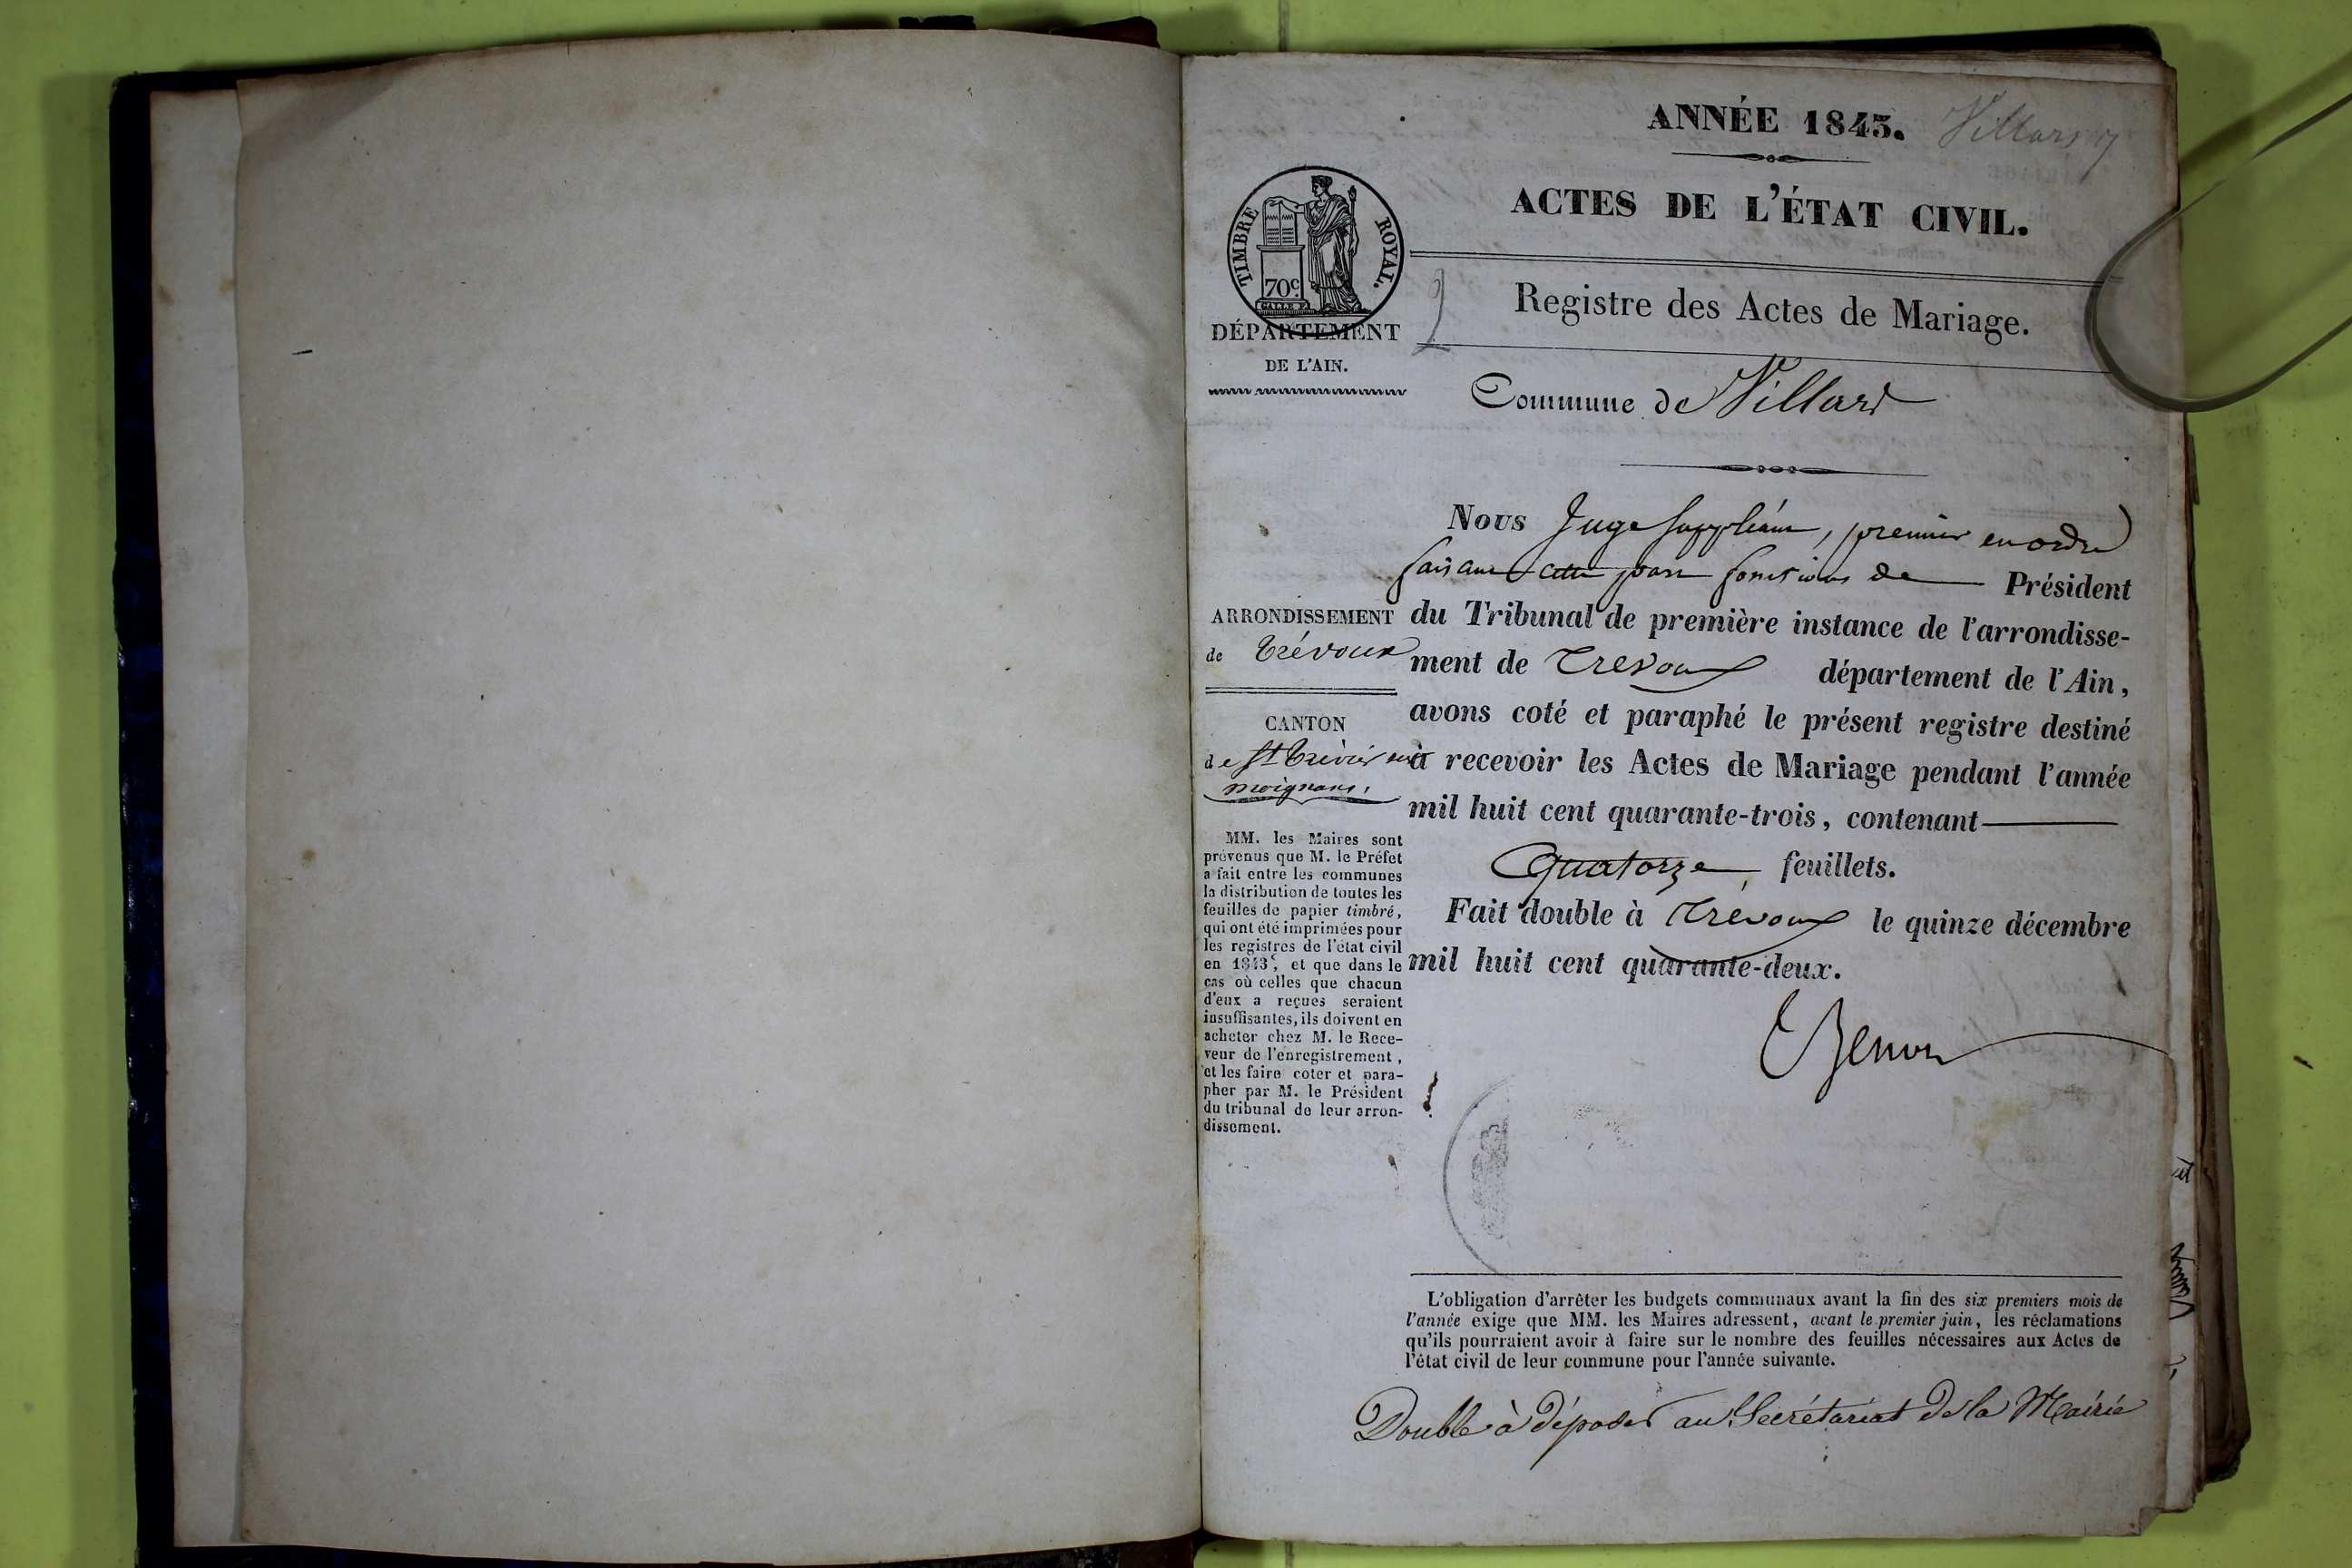 ANNÉE 1843. Villars
ACTES DE L'ÉTAT CIVIL.
TIMBRE ROYAL.
70c.
DÉPARTEMENT
DE L'AIN.
2
Registre des Actes de Mariage.
Commune de Villars
Nous Juge suppléant, premier en ordre
faisant cette part fonctions de Président
du Tribunal de première instance de l'arrondisse-
ment de Trévoux département de l'Ain,
avons coté et paraphé le présent registre destiné
à recevoir les Actes de Mariage pendant l'année
mil huit cent quarante-trois, contenant
quatorze feuillets.
Fait double à Trévoux le quinze décembre
mil huit cent quarante-deux.
ARRONDISSEMENT
de Trévoux
CANTON
de St Trivier sur
moignans.
MM. les Maires sont
prévenus que M. le Préfet
a fait entre les communes
la distribution de toutes les
feuilles de papier timbré,
qui ont été imprimées pour
les registres de l'état civil
en 1843, et que dans le
cas où celles que chacun
d'eux a reçues seraient
insuffisantes, ils doivent en
acheter chez M. le Rece-
veur de l'enregistrement,
et les faire coter et para-
pher par M. le Président
du tribunal de leur arron-
dissement.
L'obligation d'arrêter les budgets communaux avant la fin des six premiers mois de
l'année exige que MM. les Maires adressent, avant le premier juin, les réclamations
qu'ils pourraient avoir à faire sur le nombre des feuilles nécessaires aux Actes de
l'état civil de leur commune pour l'année suivante.
Double à déposer au Secrétariat de la Mairie